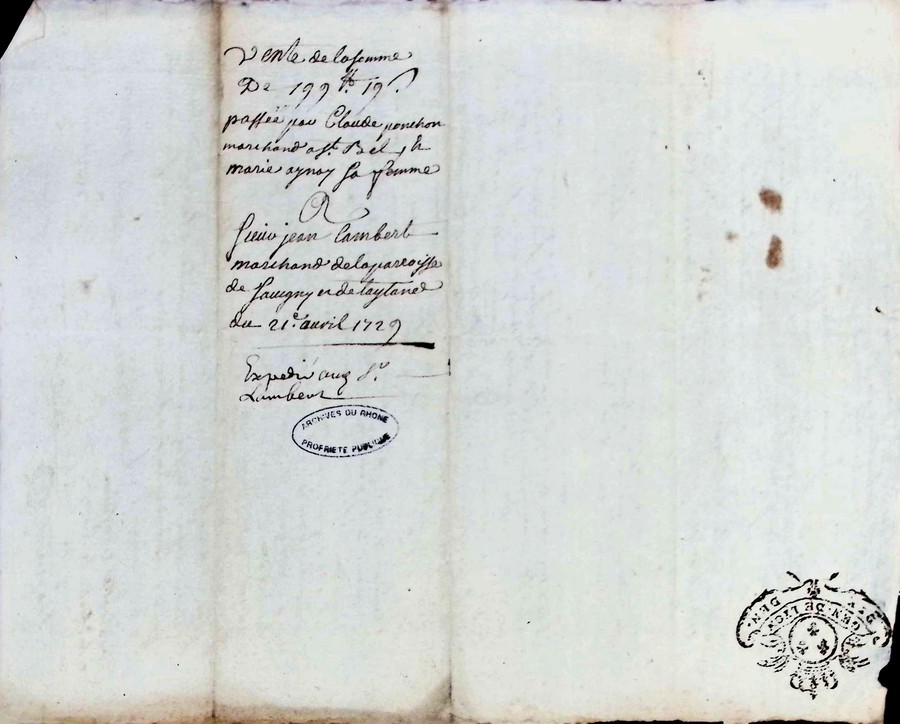 Vente de la somme
De 199 ₶ 19 s.
passée par Claude ponchon
marchand a St. Bel, &
marie aynay sa femme
A
sieur jean Lambert
marchand de la paroisse
de Savigny et de taylané
du 21e. avril 1729
Expedié aud Sr.
Lambert
ARCHIVES DU RHONE
PROPRIETE PUBLIQUE
GEN. DE LION